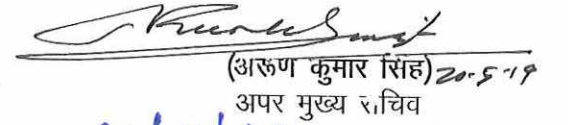 (अरूण कुमार सिंह) 20-5-19
अपर मुख्य सचिव